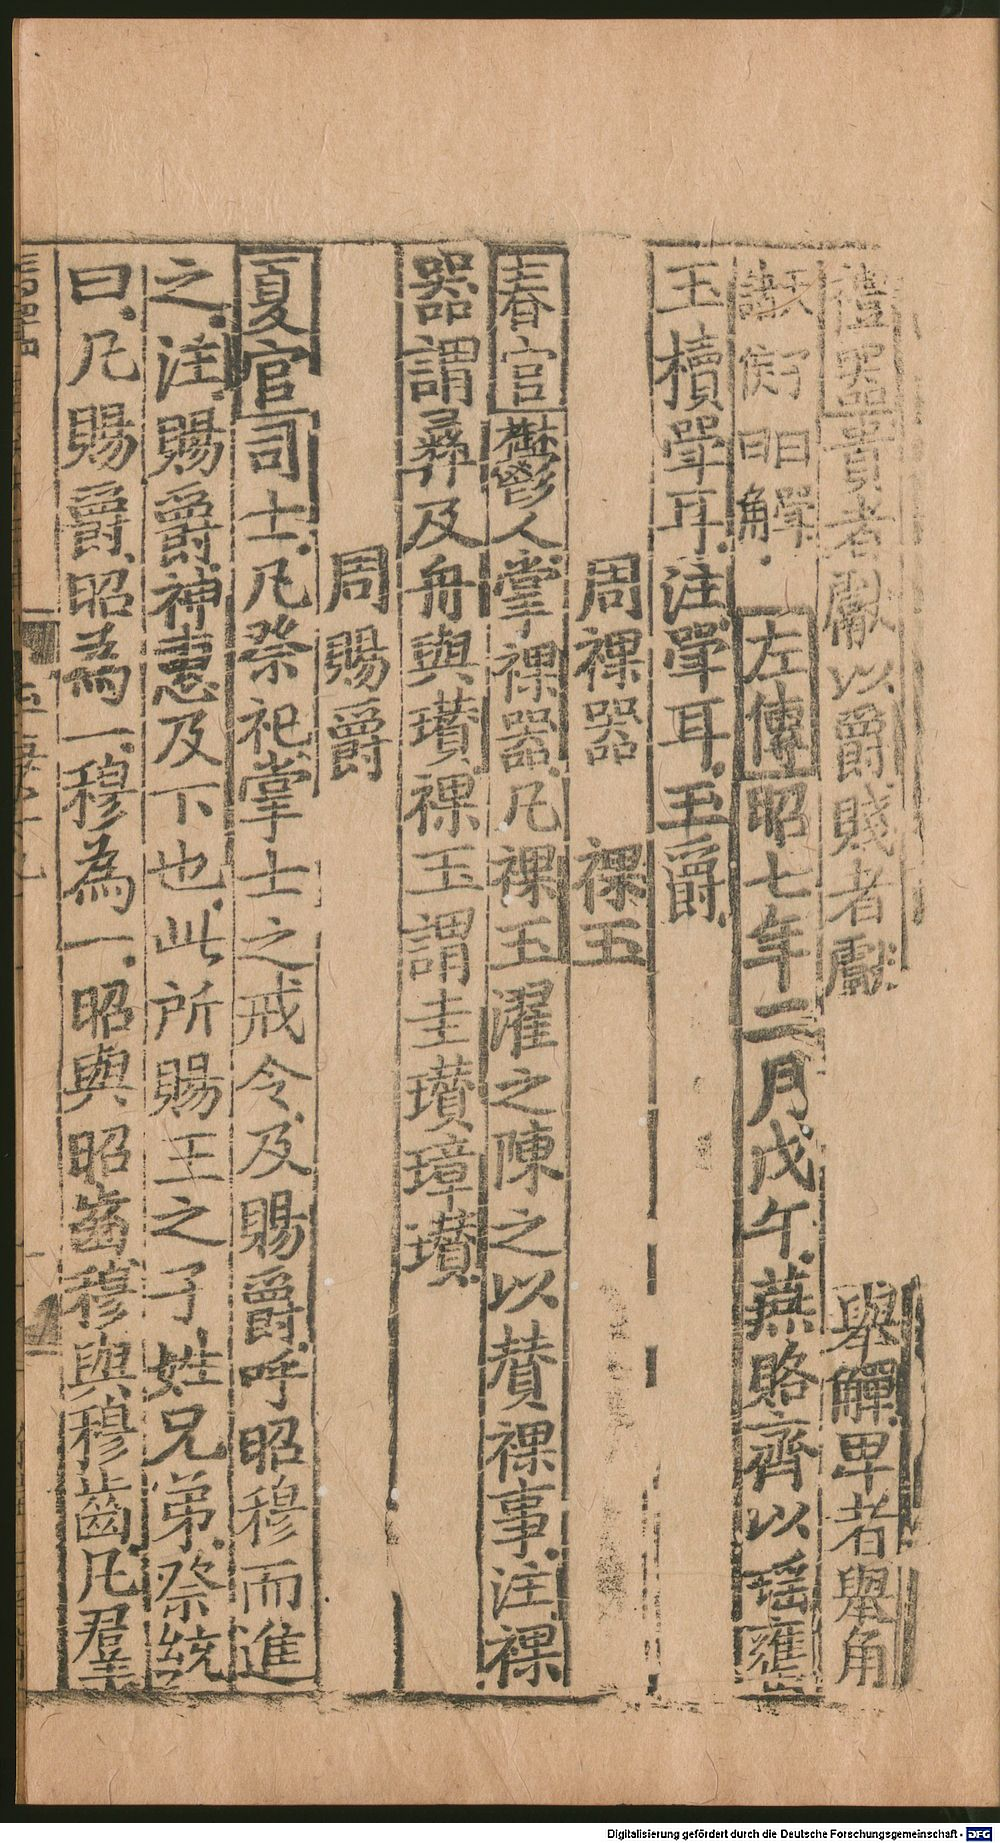 禮器貴者獻以爵賤者獻舉觶卑者舉角
左傳昭七年二月戊午燕賂齊以瑤罋
玉櫝斝耳注斝耳玉爵
周祼器 祼玉
春官鬱人掌祼器凡祼玉濯之陳之以贊祼事注祼
器謂彝及舟與瓚祼玉謂圭瓚璋瓚
周賜爵
夏官司士凡祭祀掌士之戒令及賜爵呼昭穆而進
之注賜爵神惠及下也此所賜王之子姓兄弟祭統
曰凡賜爵昭為一穆為一昭與昭齒穆與穆齒凡羣
Digitalisierung gefördert durch die Deutsche Forschungsgemeinschaft - DFG